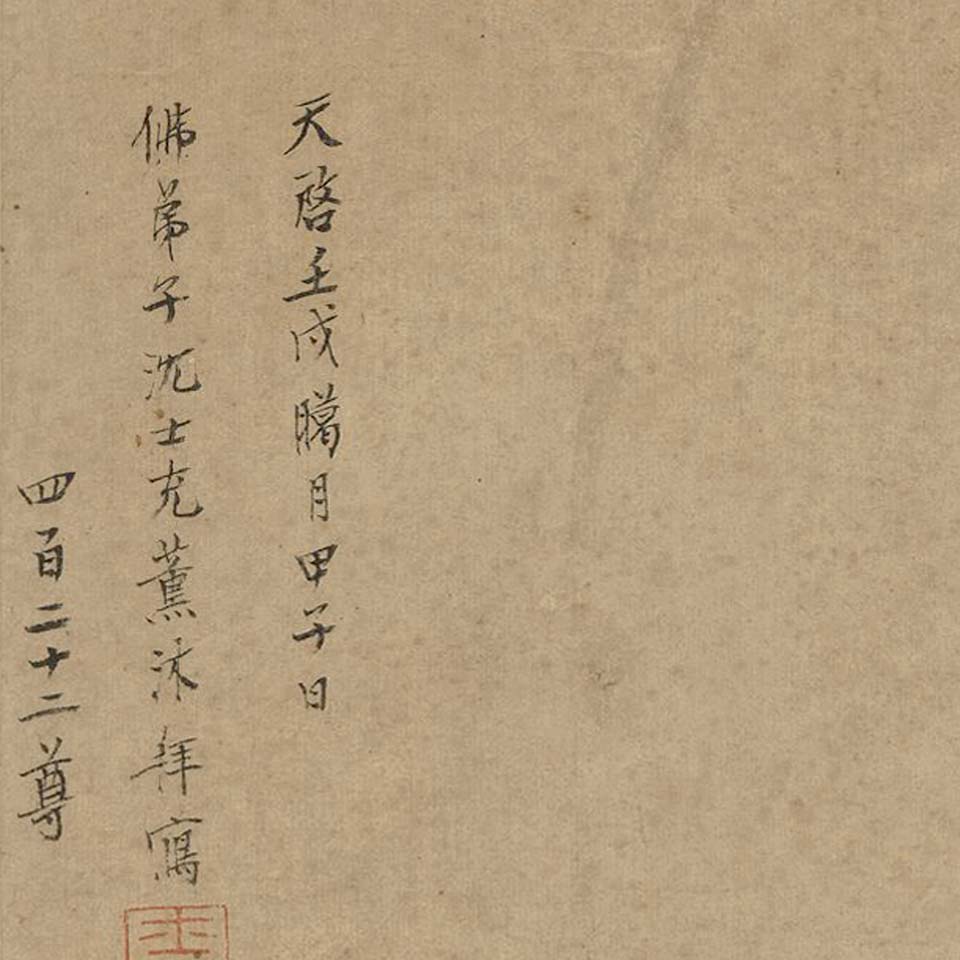 天啓壬戌臈月甲子日
佛弟子沈士充薰沐拜寫
四百二十二尊